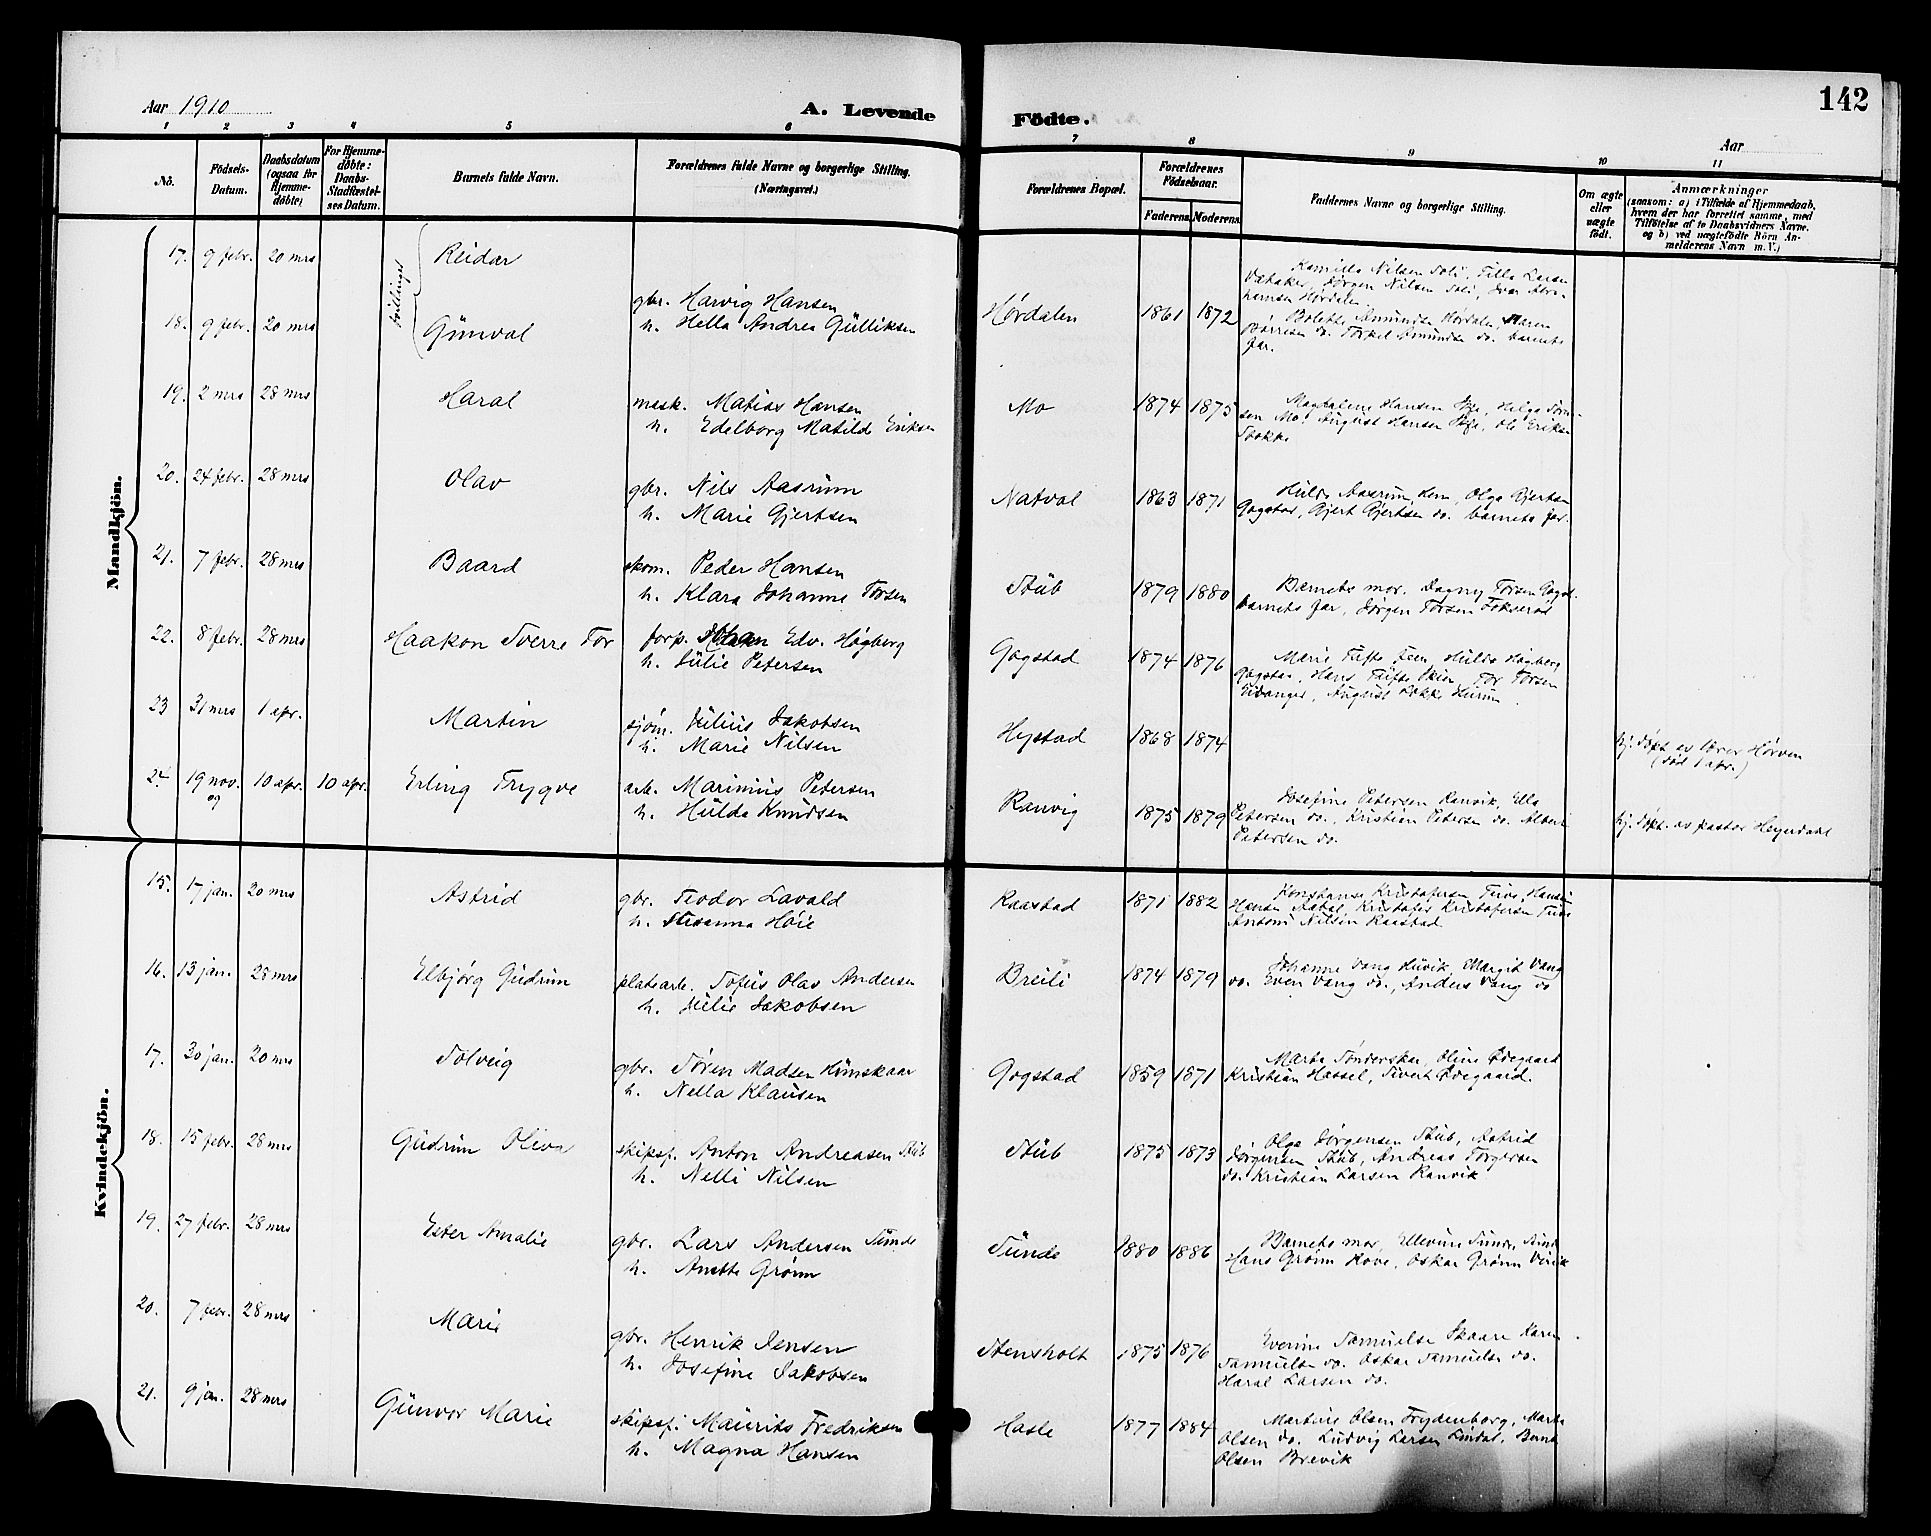 142
Aar 1910
A. Levende
Födte.
Aar
1 2 3 4 5 6 7 8 9 10 11
No.
Födsels-
Datum.
Daabsdatum
(ogsaa for
Hjemme-
döbte)
For Hjemme-
döbte:
Daabs-
Stadfæstel-
ses Datum.
Barnets fulde Navn.
Forældrenes fulde Navne og borgerlige Stilling.
(Næringsvei.)
Forældrenes Bopæl.
Forældrenes
Födselsaar.
Faderens. Moderens.
Faddernes Navne og borgerlige Stilling.
Om ægte
eller
uægte
födt.
Anmærkninger
(saasom: a) i Tilfælde af Hjemmedaab,
hvem der har forrettet samme, med
Tilföielse af to Daabsvidners Navne.
og b) ved uægtefödte Börn An-
melderens Navn m. V.)
Mandkjön.
17. 9 febr. 20 mrs Reidar
tvillinger
18. 9 febr. 20 mrs Gunval
gbr. Harvig Hansen
h. Hella Andrea Gulliksen
Hørdalen 1861 1872
Kamilla Nilsen Soli, Tilla Larsen
Vataker, Jørgen Nilsen Soli, Ivar Abra-
hamsen Hørdalen.
Bolette Amundsen Hørdalen, Maren
Børresen do. Torkel Amundsen do. barnets
far.
19. 2 mrs 28 mrs Haral
mask. Matias Hansen
h. Edelborg Matilde Eriksen
Mo 1874 1875
Magdalene Hansen Helga
sen Mo, August Hansen Ole Eriksen
Stokke
20. 24 febr. 28 mrs Olav
gbr. Nils Aasrum
h. Marie Gjertsen
Natval 1863 1871
Hulda Aasrum, Hem, Olga Gjertsen
Gogstad, Gjert Gjertsen do. barnets far.
21. 7 febr. 28 mrs Baard
skom. Peder Hansen
h. Klara Johanne Torsen
Stub 1879 1880
Barnets mor. Dagny Torsen Gogst.
barnets far, Jørgen Torsen Fokserød
22. 8 febr. 28 mrs Haakon Sverre Tor
forp. Johan Edv. Høgberg
h. Julie Petersen
Gogstad 1874 1876
Marie Tufte Feen, Hulda Høgberg
Gogstad, Hans Tufte Skien, Tor Torsen
Eidanger, August Løkke Hurum.
23 31 mrs 1 apr. Martin
sjøm. Julius Jakobsen
h. Marie Nilsen
Hystad 1868 1874
hj. døpt av Hørven
(død 1 apr.)
24. 19 nov. 09 10 apr. 10 apr. Erling Trygve
arb. Marinius Petersen
h. Hulda Knudsen
Ranvig 1875 1879
Josefine Petersen Ranvik, Ella
Petersen do., Kristian Petersen do. Albert
Petersen do.
hj. døpt. av pastor Heyerdahl
Kvindekjön.
15. 17 jan. 20 mrs Astrid
gbr. Teodor Lavald
h. Susanna Høie
Raastad 1871 1882
Konstanse Kristofersen
Hansen Kristofer Kristofersen
Antoni Nilsen Raastad
16. 13 jan. 28 mrs Elbjørg Gudrun
platearb. Tofus Olav Andersen
h. Julie Jakobsen
Breili 1874 1879
Johanne Vang Huvik, Margit Vang
do. Even Vang do., Anders Vang do
17. 30 jan. 20 mrs Solveig
gbr. Søren Madsen Kumskaar
h. Nella Klausen
Gogstad 1859 1871
Marta Sønderskar, Oline Ødegaard
Kristian Hassel, Sivert Ødegaard.
18. 15 febr. 28 mrs Gudrun Oliva
skipsf. Anton Andreasen Stub
h. Nelli Nilsen
Stub 1875 1873
Olga Jørgensen Stub, Astrid
Jørgensen Stub, Andreas Torgersen
do. Kristian Larsen Ranvik
19. 27 febr. 28 mrs Ester Amalie
gbr. Lars Andersen Sunde
h. Anette Grønn
Sunde 1880 1886
Barnets mor, Ellevine Sunde, Sunde
Hans Grønn Kove, Oskar Grønn Virik
20. 7 febr. 28 mrs Marie
gbr. Henrik Jensen
h. Josefine Jakobsen
Stensholt 1875 1876
Everine Samuelse Skaare Karen
Samuelse do. Oskar Samuelse do.
Haral Larsen do.
21. 9 jan. 28 mrs Gunvor Marie
skipsf. Maurits Fredriksen
h. Magna Hansen
Hasle 1877 1884
Martine Olsen Frydenborg, Marta
Olsen do. Ludvig Larsen Lindal, Bernt
Olsen Brevik